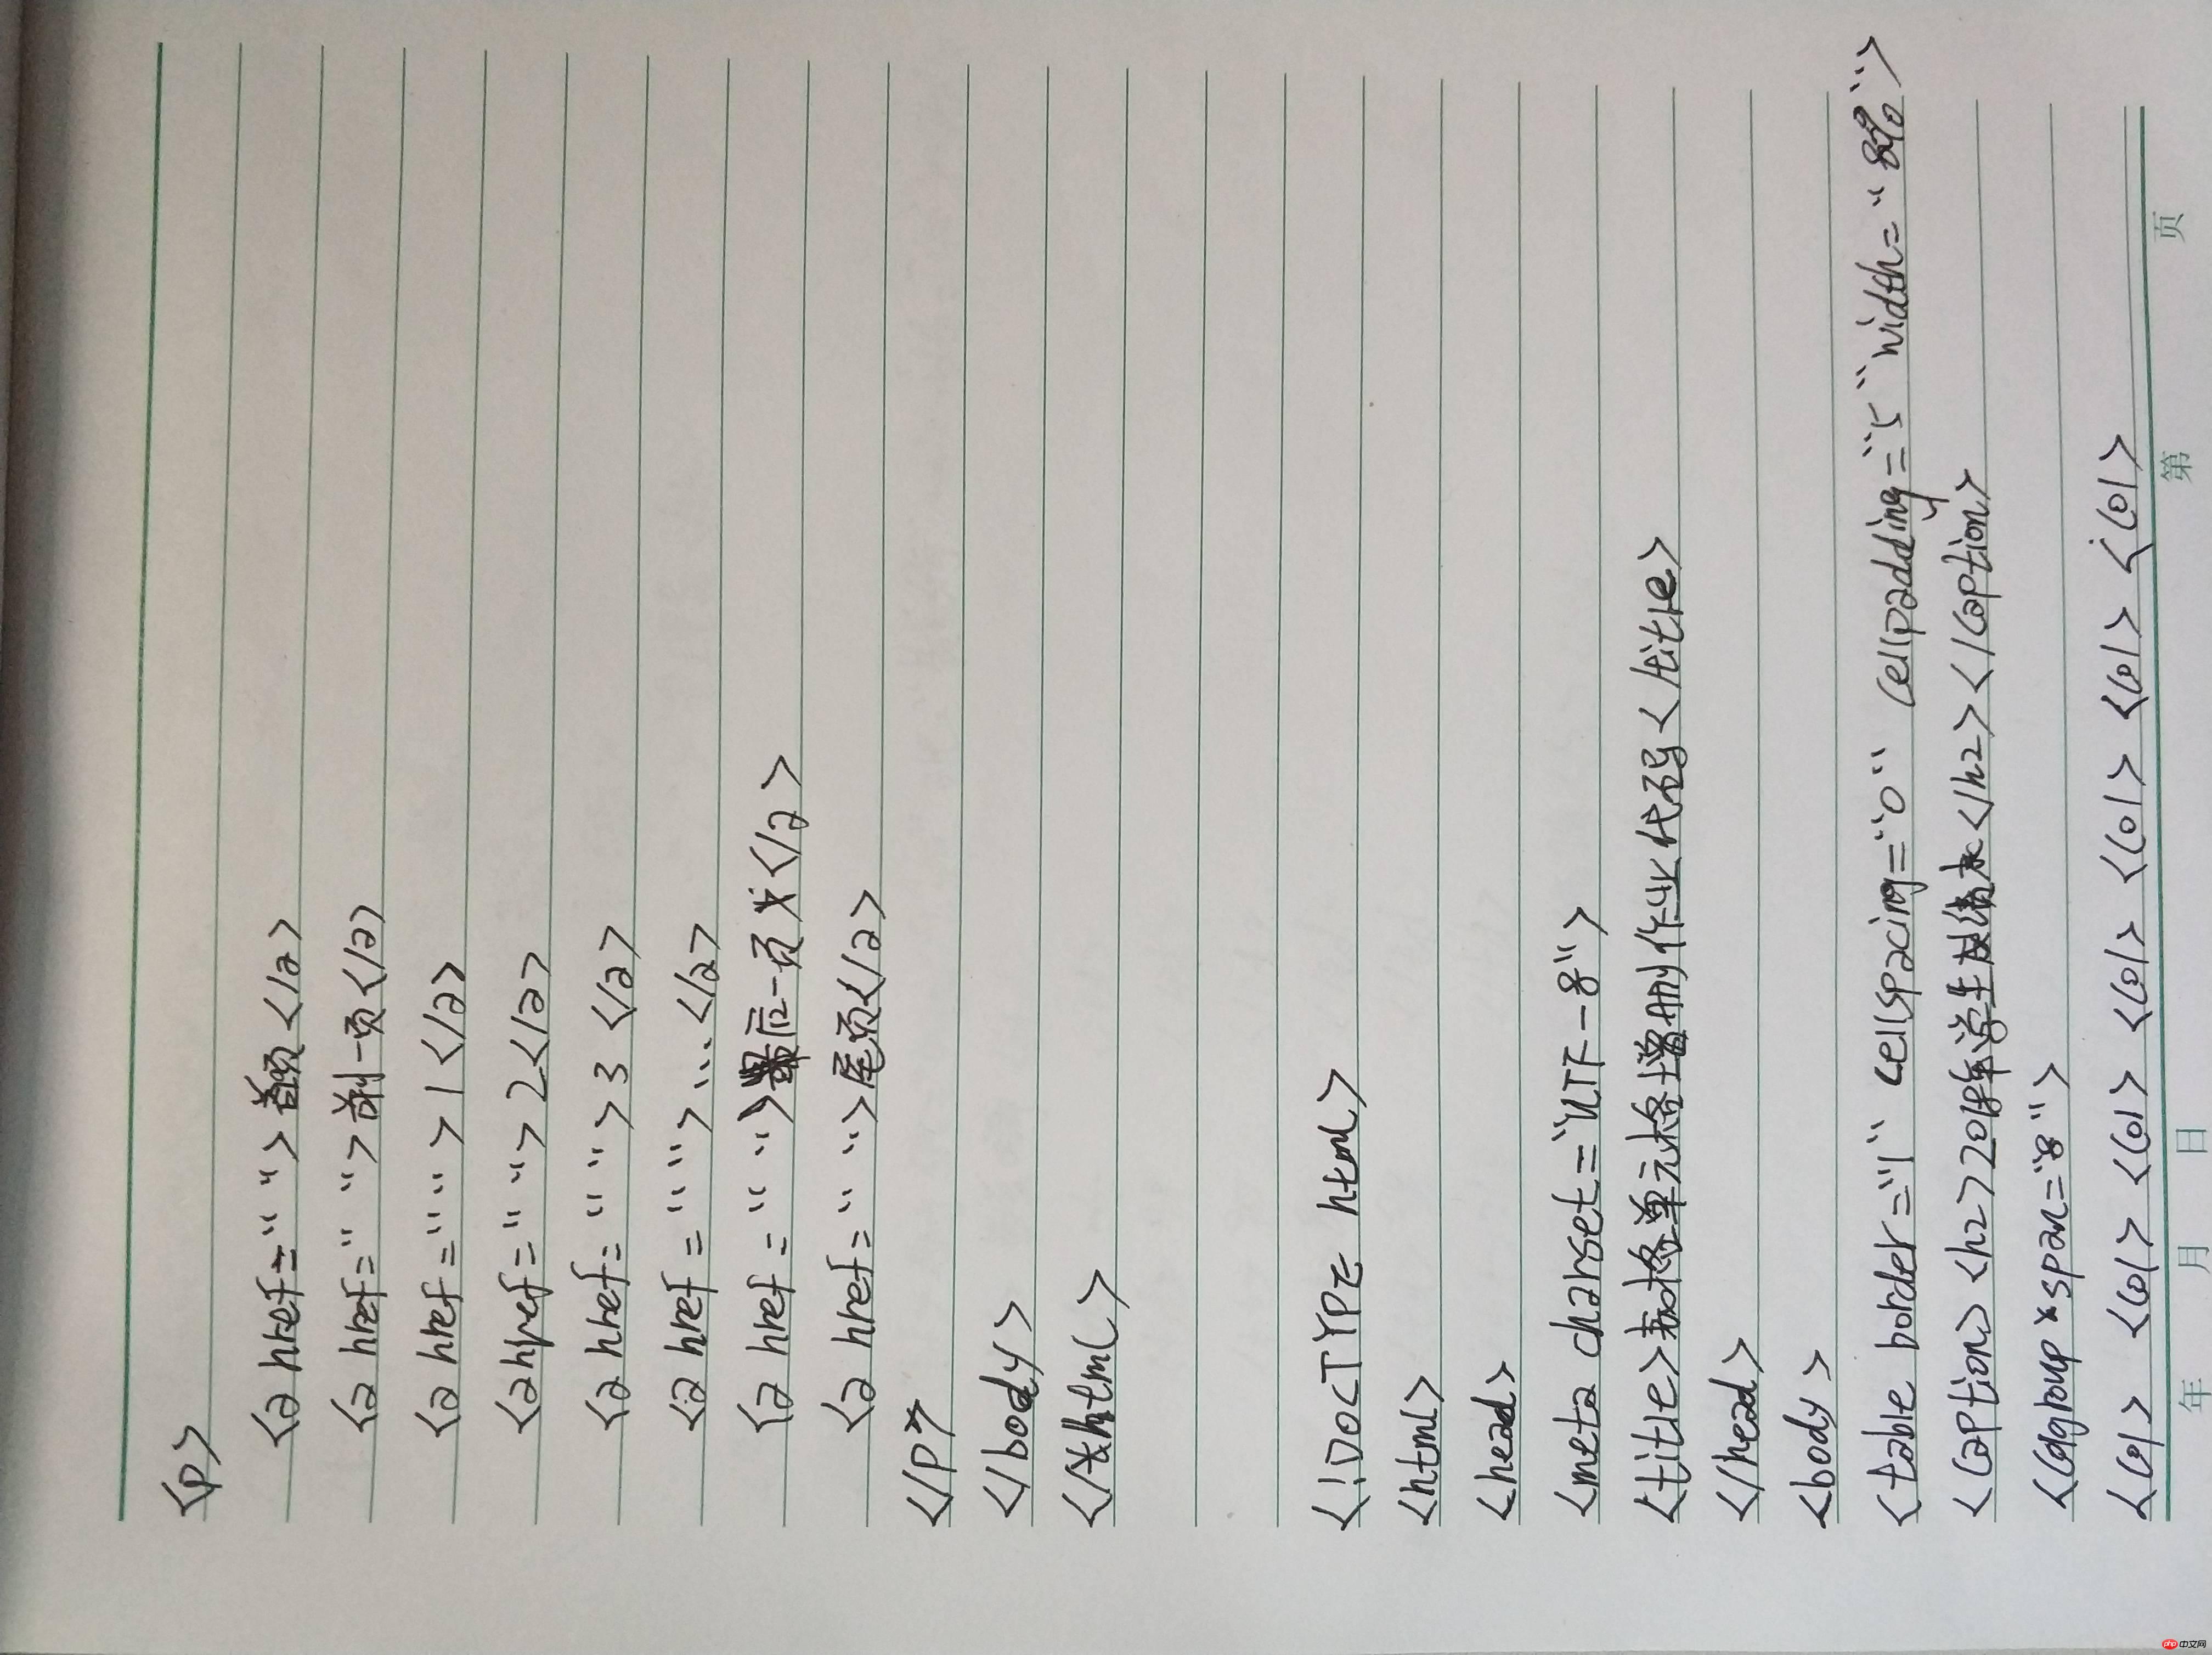 <p>
<a href="">首页</a>
<a href="">前一页</a>
<a href="">1</a>
<a href="">2</a>
<a href="">3</a>
<a href="">...</a>
<a href="">最后一页</a>
<a href="">尾页</a>
</p>
</body>
</html>
<!DOCTYPE html>
<html>
<head>
<meta charset="UTF-8">
<title>表格单元格增删作业代码</title>
</head>
<body>
<table border="1" cellspacing="0" cellpadding="5" width="8%">
<caption><h2>2018年学生</h2></caption>
<colgroup span="8">
<col> <col> <col> <col> <col> <col> <col>
年 月 日 第 页
php 中文网